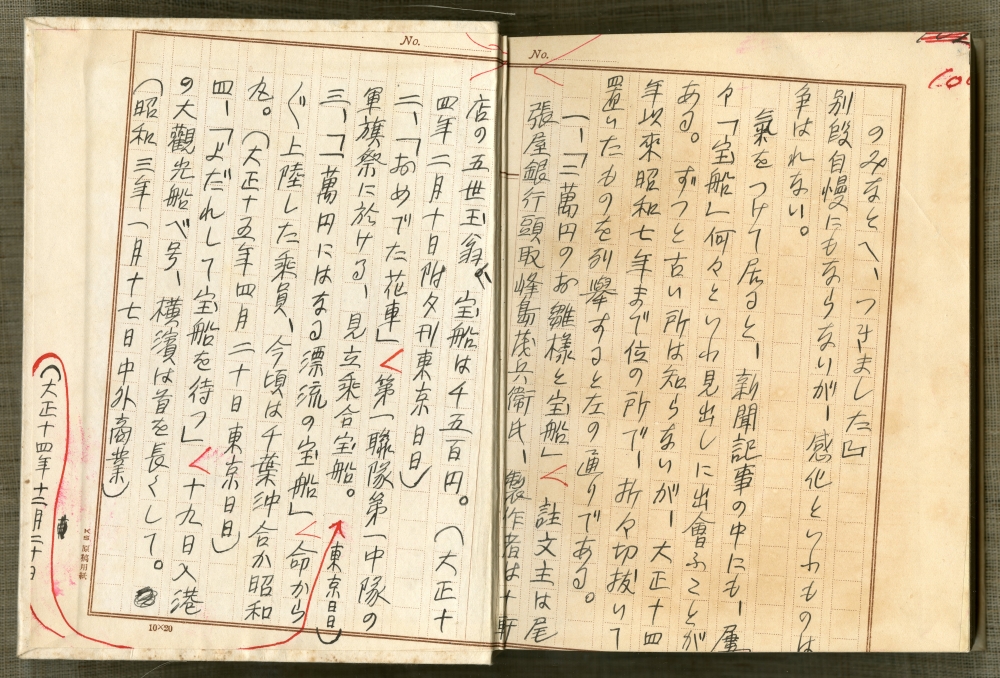 No.
のみなと へ、つきました凸
別段自慢にもならないが、感化といふものは
争はれない。
氣をつけて居ると、新聞記事の中にも、屢
々「宝船」何々といふ見出しに出會ふことが
ある。ずつと古い所は知らないが、大正十四
年以來昭和七年まで位の所で、折々切抜いて
置いたものを列擧すると左の通りである。
一、「二萬円のお雛様と宝船」 註文主は尾
張屋銀行頭取峰島茂兵衞氏、製作者は十軒
No.
店の五世玉翁 宝船は千五百円。(大正十
四年二月十日附夕刊東京日日)
二、「おめでた花車」 第一聯隊第一中隊の
軍旗祭に於ける、見立乘合宝船。
東京日日)
三、「一萬円にはなる漂流の宝船」 命から
ぐ上陸した乘員、今頃は千葉沖合か昭和
丸。(大正十五年四月二十日東京日日)
四、「よだれして宝船を待つ」 十九日入港
の大觀光船べ号、橫濱は首を長くして。
(昭和三年一月十七日中外商業)
(大正十四年十二月二十日
原稿用紙
10×20